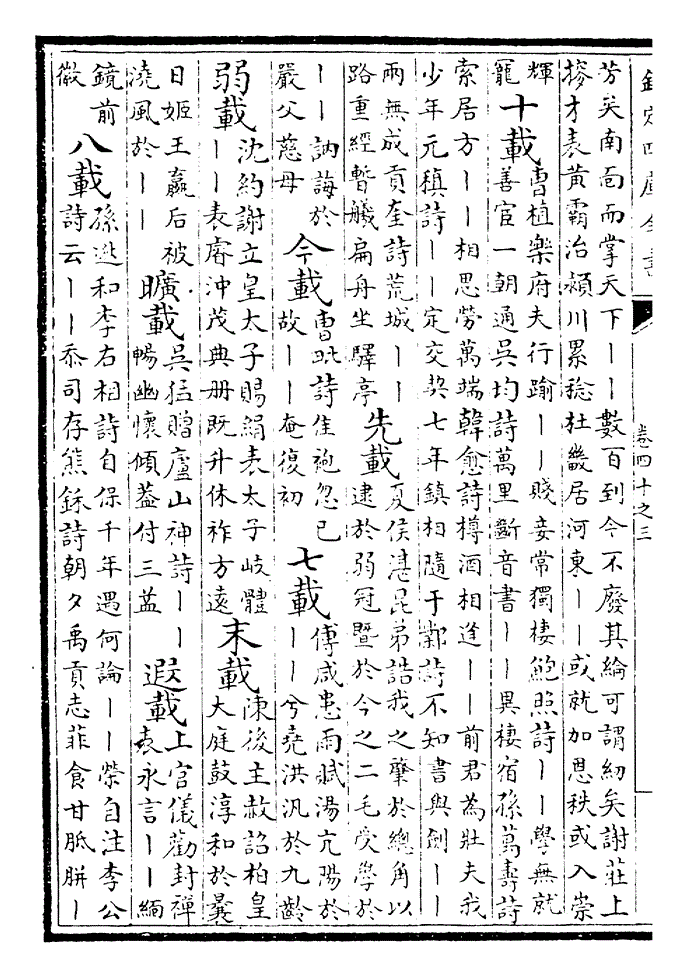 欽定四庫全書 卷四十之三
芳矣南面而掌天下——數百到今不廢其綸可謂紉矣謝莊上
搒才表黃霸治潁川累稔杜畿居河東——或就加恩秩或入崇
輝
寵
十載
曹植樂府夫行踰——賤妾常獨棲鮑照詩——學無就
善宦一朝通吳均詩萬里斷音書——異棲宿孫萬壽詩
索居方——相思勞萬端韓愈詩樽酒相逢——前君為壯夫我
少年元稹詩——定交契七年鎮相隨于鄴詩不知書與劍——
兩無成貢奎詩荒城——
路重經暫艤扁舟坐驛亭
先載
夏侯湛昆弟誥我之肇於總角以
逮於弱冠暨於今之二毛受學於
——訥誨於
嚴父慈母
今載
曹毗詩佳袍忽已
故——奄復初
七載
傅咸患雨賦湯亢陽於
——兮堯洪汎於九齡
弱載
沈約謝立皇太子賜絹表太子岐體
——表睿沖茂典冊既升休祚方遠
末載
陳後主赦詔柏皇
大庭鼓淳和於曩
日姬王嬴后被
澆風於——
曠載
吳猛贈廬山神詩——
暢幽懷傾蓋付三益
遐載
上官儀勸封禪
表永言——緬
鏡前
徽
八載
孫逖和李右相詩自保千年遇何論——榮自注李公
詩云——忝司存熊鉌詩朝夕禹貢志菲食甘胝胼—